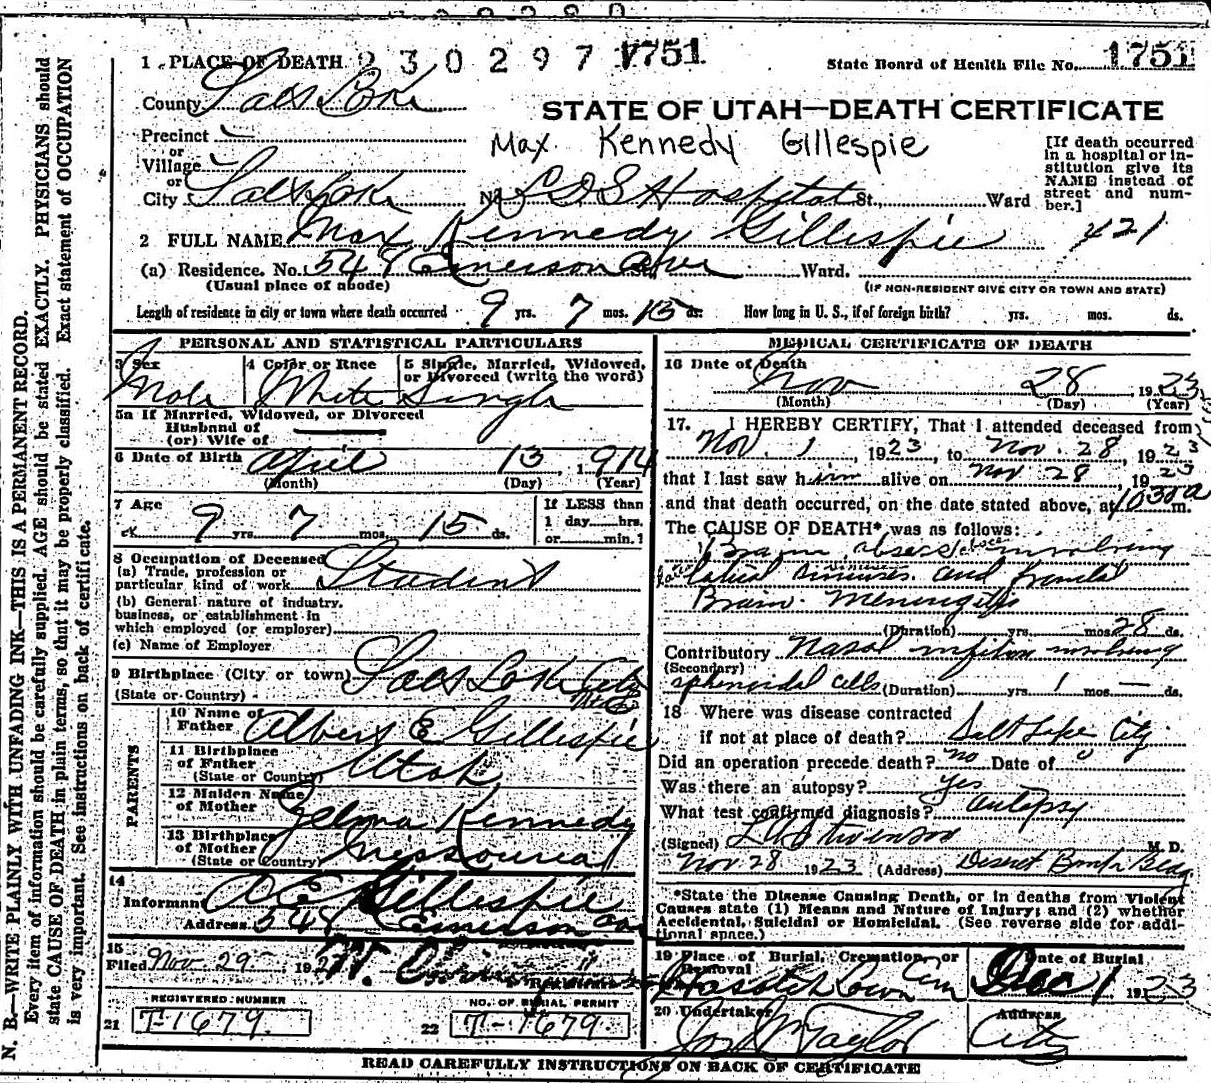 1 PLACE OF DEATH 2 3 0 2 9 7 1751
State Board of Health File No. 1751
County Salt Lake
STATE OF UTAH—DEATH CERTIFICATE
Precinct
Max Kennedy Gillespie
or
Village
or
City Salt Lake No. L D S Hospital St., Ward
[If death occurred
in a hospital or in-
stitution give its
NAME instead of
street and num-
ber.]
2 FULL NAME Max Kennedy Gillespie
421
(a) Residence. No. 548 Emerson Ave Ward.
(Usual place of abode)
(IF NON-RESIDENT GIVE CITY OR TOWN AND STATE)
Length of residence in city or town where death occurred 9 yrs. 7 mos. 15 ds. How long in U. S., if of foreign birth? yrs. mos. ds.
PERSONAL AND STATISTICAL PARTICULARS
3 Sex
Male
4 Color or Race
White
5 Single, Married, Widowed,
or Divorced (write the word)
Single
5a If Married, Widowed, or Divorced
Husband of
(or) Wife of
6 Date of Birth April 13, 1914
(Month) (Day) (Year)
7 Age
9 yrs. 7 mos. 15 ds.
If LESS than
1 day hrs.
or min.?
8 Occupation of Deceased
(a) Trade, profession or
particular kind of work Student
(b) General nature of industry,
business, or establishment in
which employed (or employer)
(c) Name of Employer
9 Birthplace (City or town) Salt Lake City
(State or Country)
PARENTS
10 Name of
Father Albert E Gillespie
11 Birthplace
of Father
(State or Country) Utah
12 Maiden Name
of Mother Zelma Kennedy
13 Birthplace
of Mother
(State or Country) Messourea
14
Informant A E Gillespie
Address 548 Emerson Ave
15
Filed Nov. 29 192
REGISTERED NUMBER
21 T-1679
NO. OF BURIAL PERMIT
22 T-1679
MEDICAL CERTIFICATE OF DEATH
16 Date of Death
Nov 28 1923
(Month) (Day) (Year)
17. I HEREBY CERTIFY, That I attended deceased from
Nov. 1, 1923, to Nov. 28, 1923
that I last saw him alive on Nov 28, 1923
and that death occurred, on the date stated above, at 1030a m.
The CAUSE OF DEATH* was as follows:
Brain abscess involving
lateral sinuses and frontal
Brain. Meningitis
(Duration) yrs. mos. 28 ds.
Contributory Nasal infection involving
(Secondary)
sphenoidal cells (Duration) yrs. 1 mos. — ds.
18 Where was disease contracted
if not at place of death? Salt Lake City
Did an operation precede death? no Date of 0
Was there an autopsy? yes
What test confirmed diagnosis? autopsy
(Signed) M. D.
Nov 28 1923 (Address) Deseret Bank Bldg
*State the Disease Causing Death, or in deaths from Violent
Causes state (1) Means and Nature of Injury; and (2) whether
Accidental, Suicidal or Homicidal. (See reverse side for addi-
tional space.)
19 Place of Burial, Cremation, or
Removal
Wasatch Lawn Cem
Date of Burial
Dec 1 1923
20 Undertaker
Jos Wm Taylor
Address
City
READ CAREFULLY INSTRUCTIONS ON BACK OF CERTIFICATE
N. B.—WRITE PLAINLY WITH UNFADING INK—THIS IS A PERMANENT RECORD.
Every item of information should be carefully supplied. AGE should be stated EXACTLY. PHYSICIANS should
state CAUSE OF DEATH in plain terms, so that it may be properly classified. Exact statement of OCCUPATION
is very important. See instructions on back of certificate.